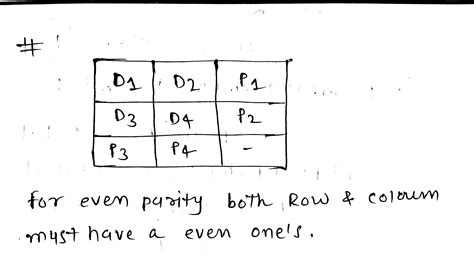 #
D1 D2 P1
D3 D4 P2
P3 P4 -
for even parity both Row & coloum
must have a even one's.